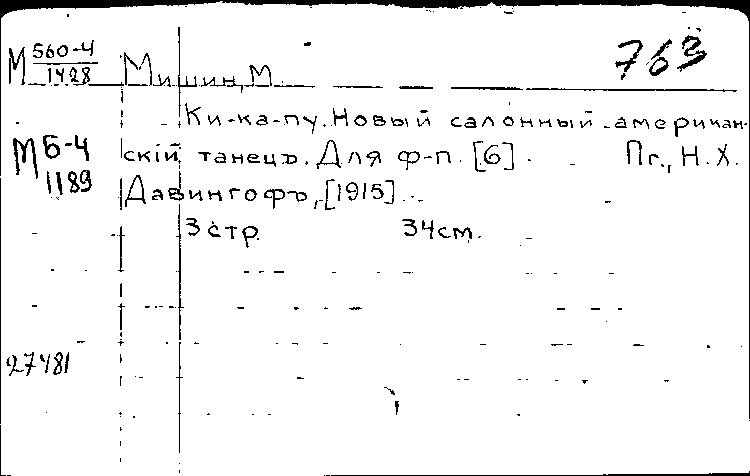 763
М 560-4
1428
Мишин, М.
Ки-ка-пу. Новый салонный американ-
М Б-4
1189
скій танецъ. Для ф-п. [6]. Пг., Н. Х.
Давингофъ, [1915].
3 стр. 34 см.
27481